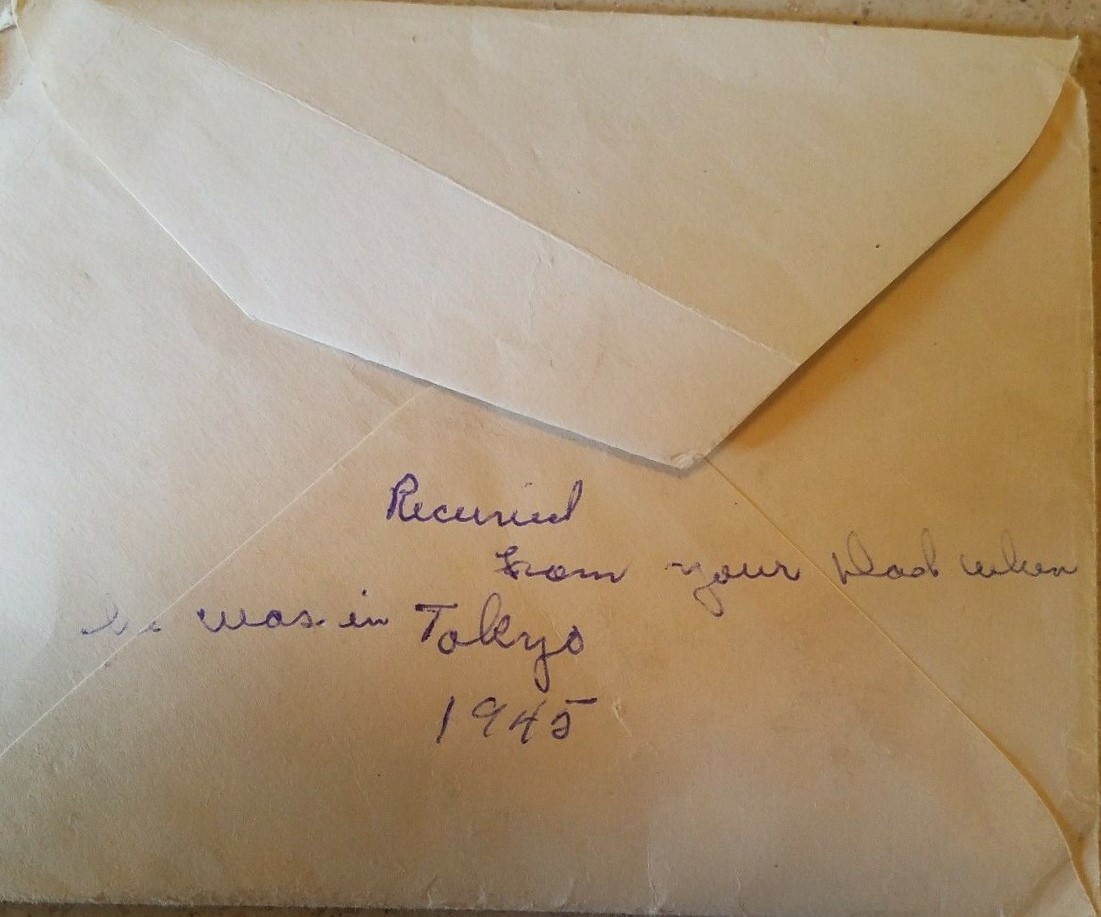 Received
from your Dad when
he was in Tokyo
1945